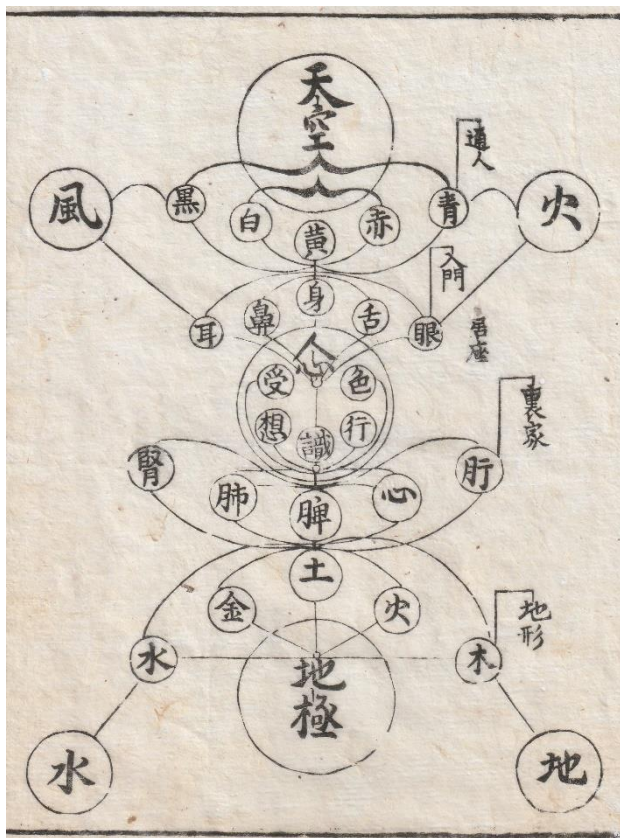 天空
道人
風
黒
白
黄
赤
青
火
入門
耳
鼻
身
舌
眼
心
受
色
想
行
識
裏家
腎
肺
脾
心
肝
土
金
火
地形
水
木
地極
水
地